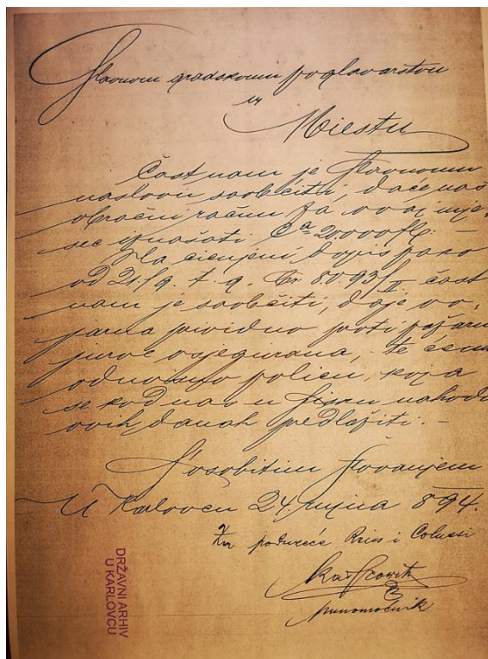 Slavnom gradskom poglavarstvu
u
Miestu
Čast nam je Slavnomu
naslovu saobćiti, da će naš
obročni račun za ovaj mje,
sec iznašati Ca 20,000 fl. –
Na cienjeni dopis
od 21/9. t. g. Br 8093/ čast
nam je saobćiti, da je vo,
jarna prividno proti požaru
osjegurana, te ćemo
odnosnu policu, koja
se kod nas u nahodi
ovih danah predložiti. –
S'osobitim štovanjem
U Karlovcu 24. rujna 894.
Za poduzeće Ries i Colussi
punomoćnik
DRŽAVNI ARHIV
U KARLOVCU